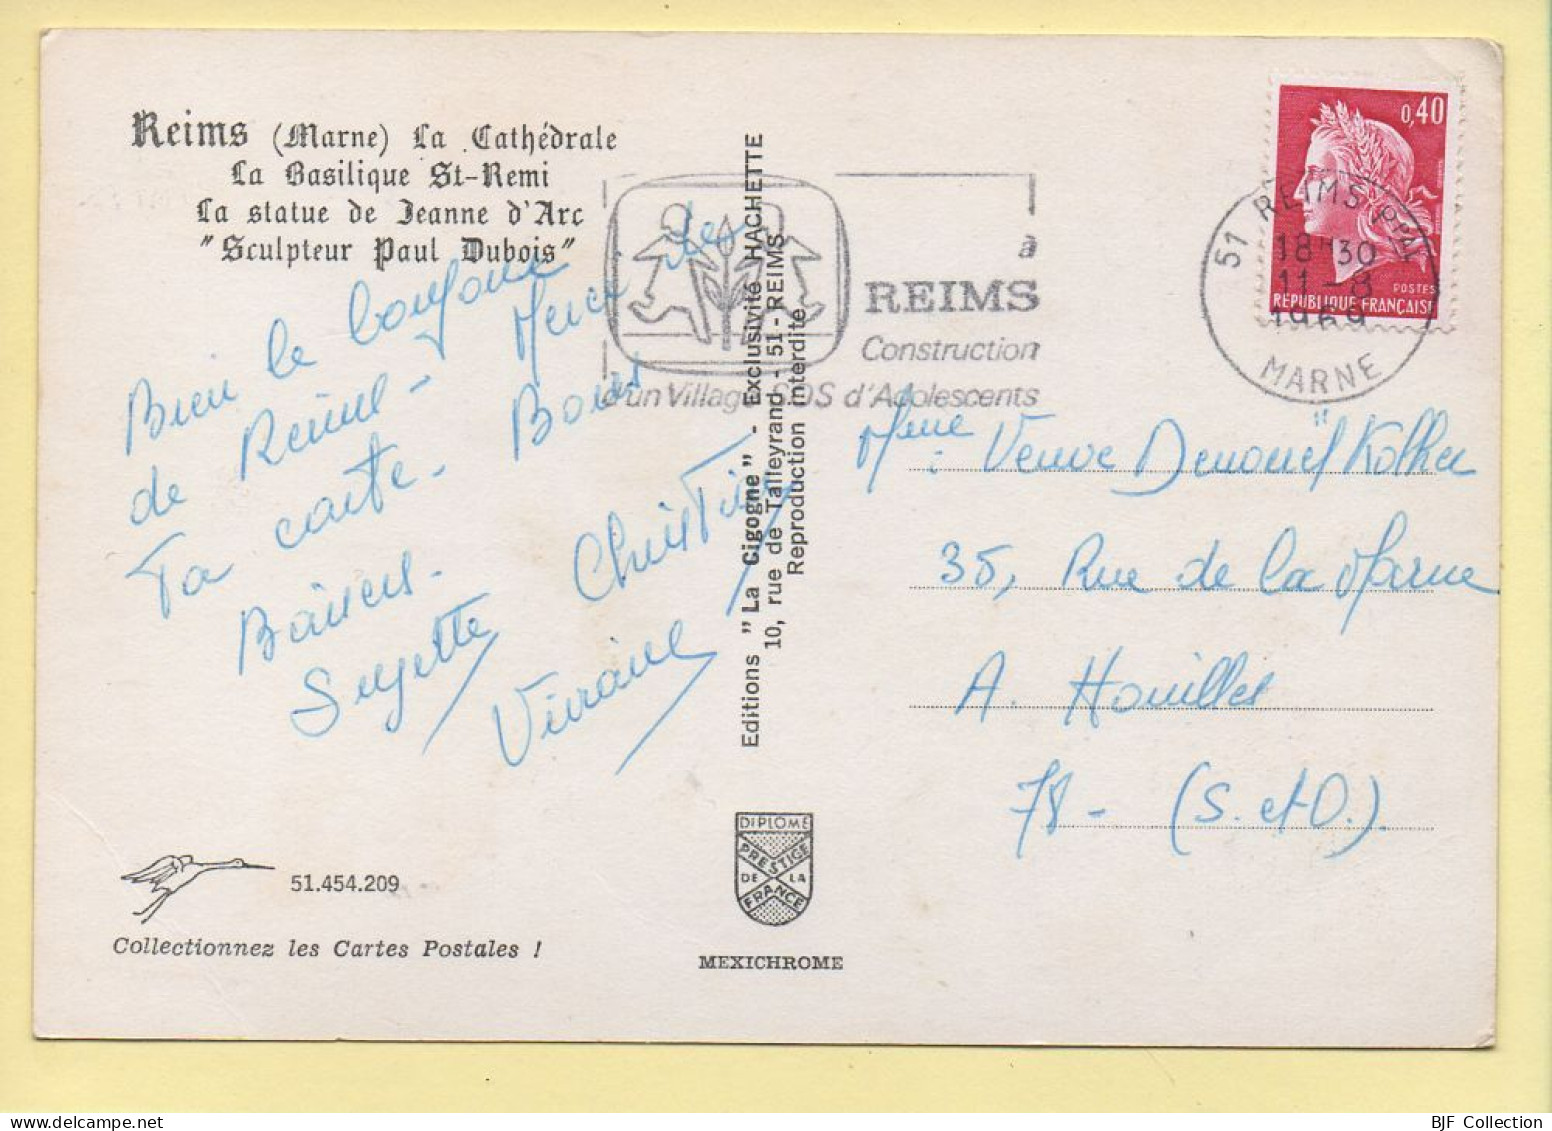 Reims (Marne) La Cathédrale
La Basilique St-Remi
La statue de Jeanne d'Arc
"Sculpteur Paul Dubois"
Bien le bonjour
de Reims - Merci de
Ta carte. Bons
Baisers.
Suzette Christine
Viviane
51.454.209
Collectionnez les Cartes Postales !
Editions "La Cigogne" - Exclusivité HACHETTE
10, rue de Talleyrand - 51 - REIMS
Reproduction interdite
DIPLOME
PRESTIGE
DE LA
FRANCE
MEXICHROME
à
REIMS
Construction
d'un Village SOS d'Adolescents
0,40
POSTES
REPUBLIQUE FRANÇAISE
51 REIMS PPAL
18H30
11-8
1969
MARNE
Mme Veuve Denoueil Kolher
35, Rue de la Marne
A. Houilles
78 - (S. et O.).
BJF Collection